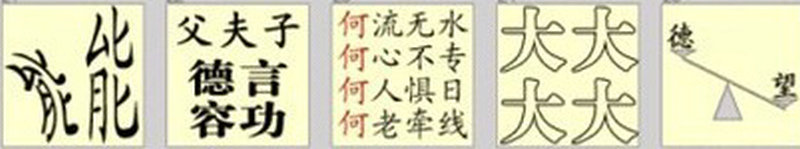 能能
父夫子
德言
容功
何流无水
何心不专
何人惧日
何老牵线
大大
大大
德
望